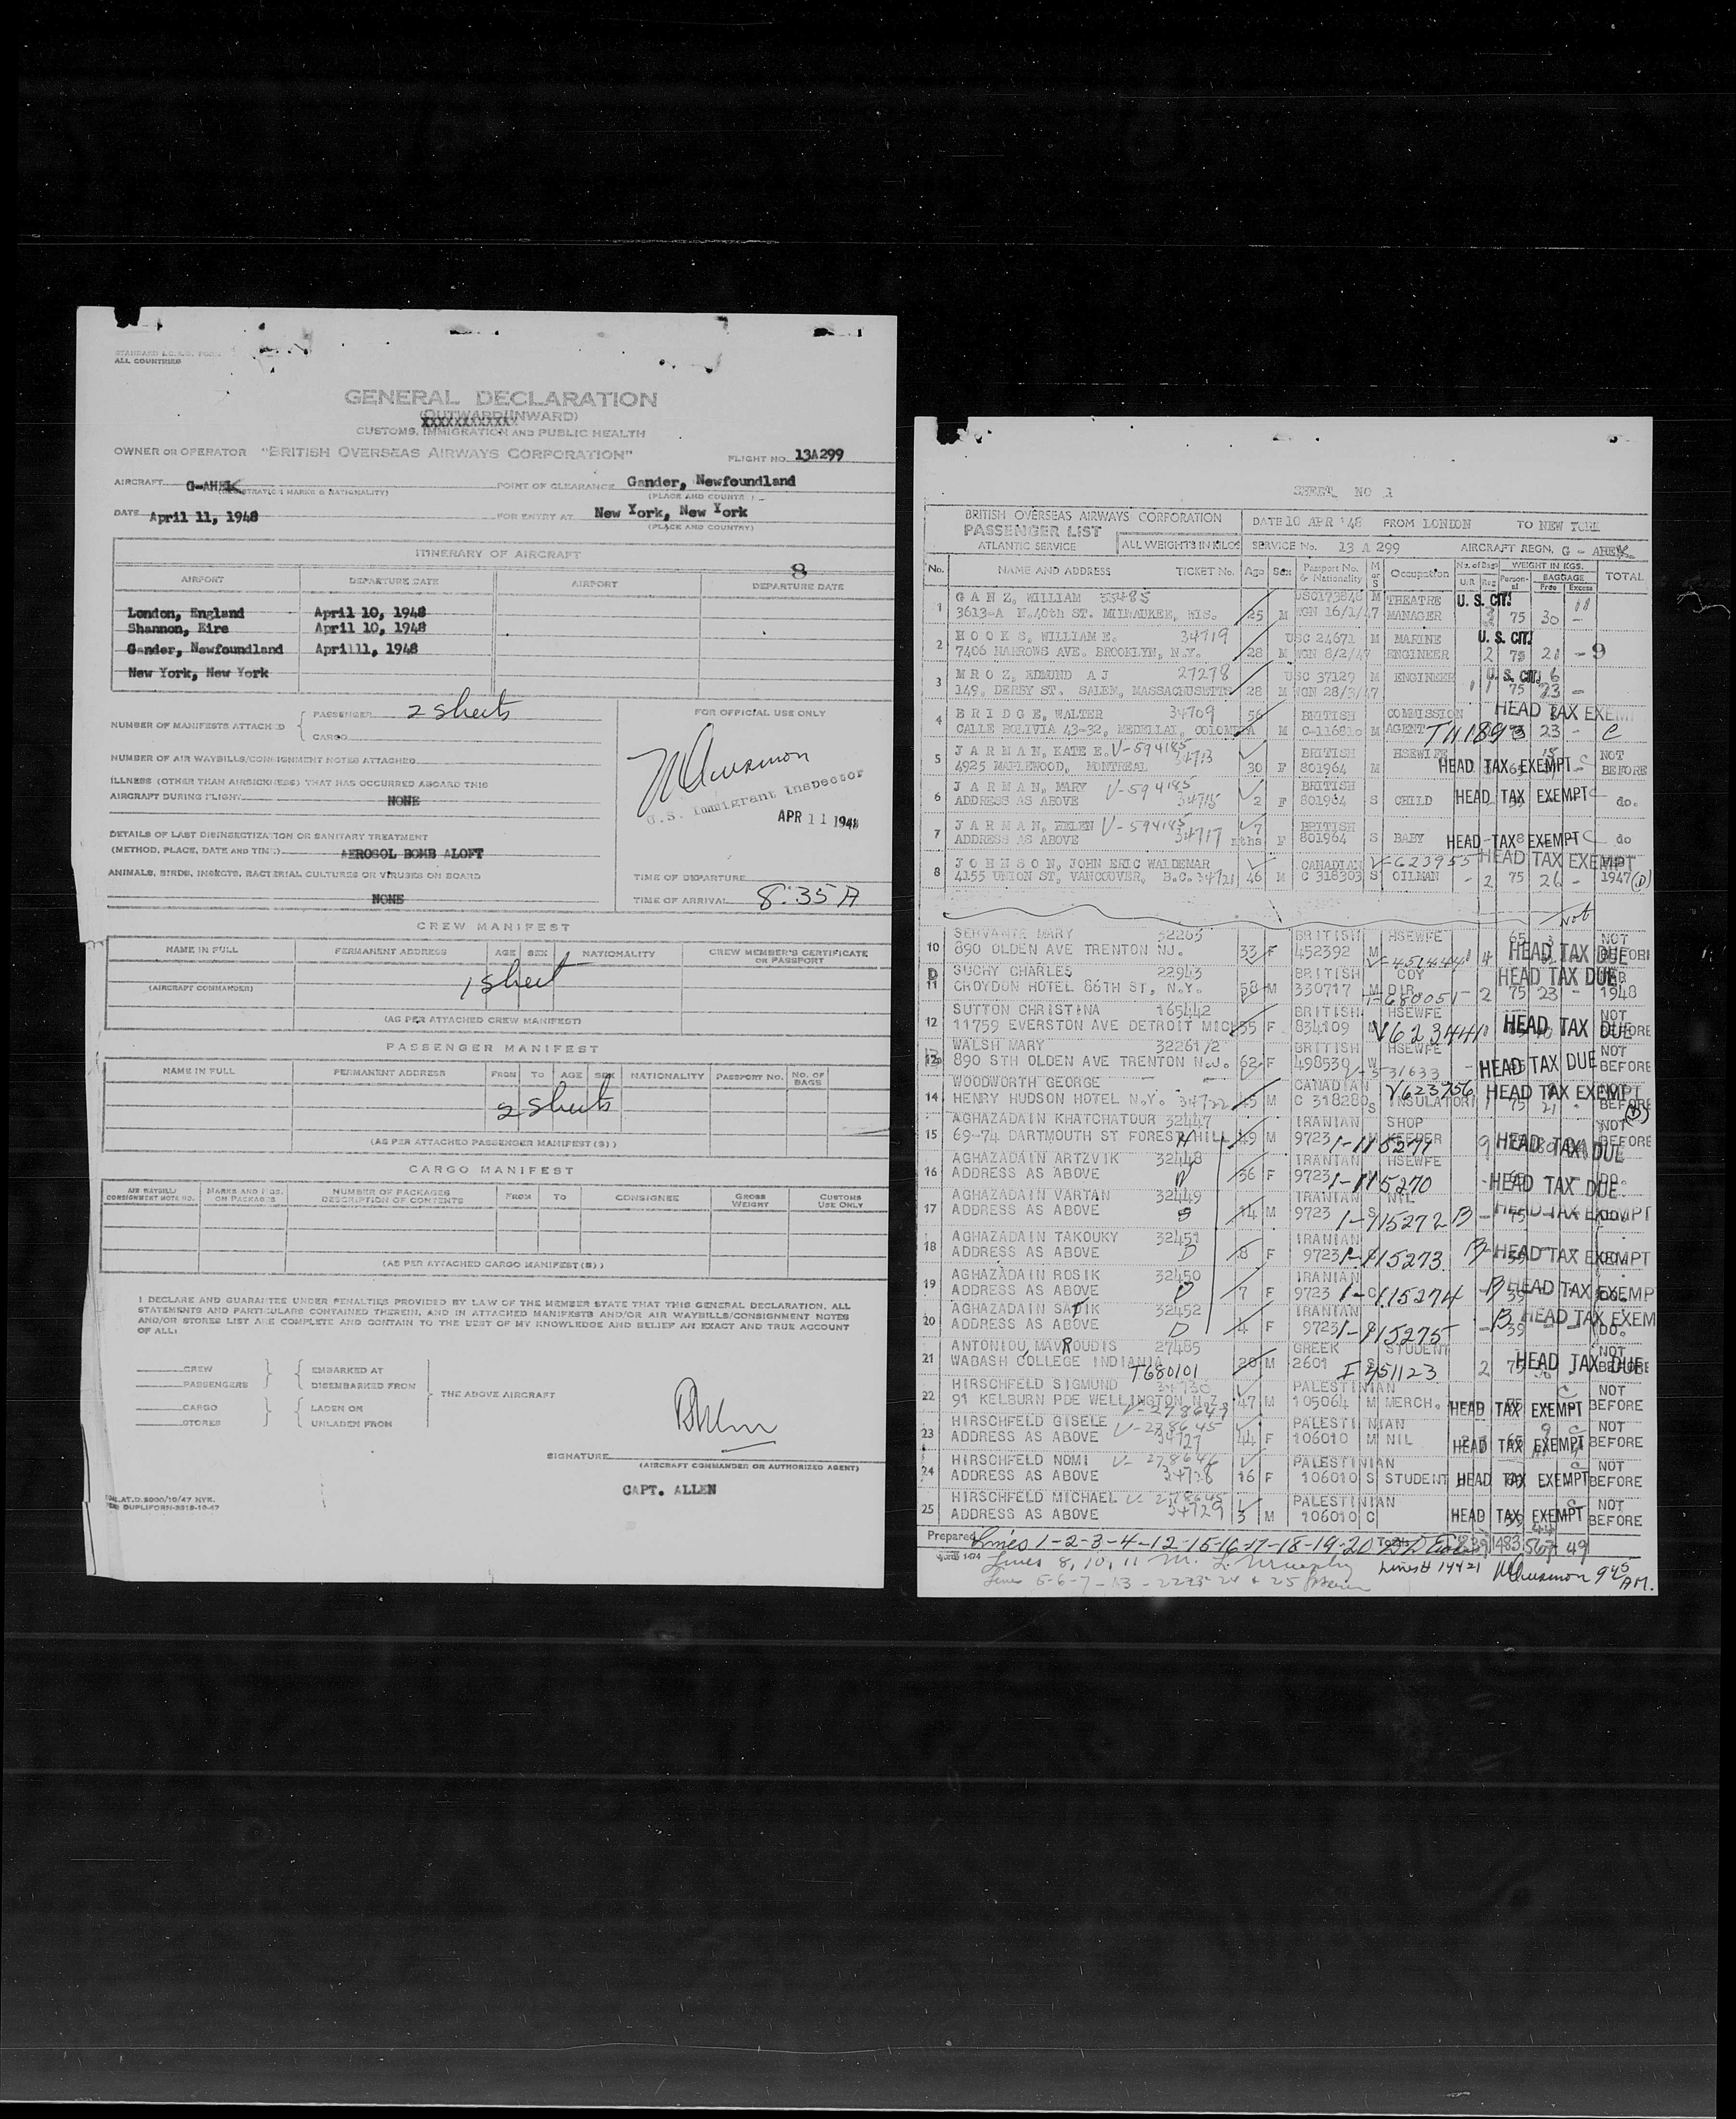 STANDARD I.C.A.O. FORM
ALL COUNTRIES
GENERAL DECLARATION
(OUTWARD/INWARD)
XXXXXXXXXXXX
CUSTOMS, IMMIGRATION AND PUBLIC HEALTH
OWNER OR OPERATOR "BRITISH OVERSEAS AIRWAYS CORPORATION" FLIGHT NO. 13A299
AIRCRAFT G-AHEK POINT OF CLEARANCE Gander, Newfoundland
(REGISTRATION MARKS & NATIONALITY) (PLACE AND COUNTRY)
DATE April 11, 1948 FOR ENTRY AT New York, New York
(PLACE AND COUNTRY)
ITINERARY OF AIRCRAFT
8
AIRPORT DEPARTURE DATE AIRPORT DEPARTURE DATE
London, England April 10, 1948
Shannon, Eire April 10, 1948
Gander, Newfoundland April11, 1948
New York, New York
NUMBER OF MANIFESTS ATTACHED PASSENGER 2 sheets
CARGO
NUMBER OF AIR WAYBILLS/CONSIGNMENT NOTES ATTACHED
ILLNESS (OTHER THAN AIRSICKNESS) THAT HAS OCCURRED ABOARD THIS
AIRCRAFT DURING FLIGHT NONE
DETAILS OF LAST DISINSECTIZATION OR SANITARY TREATMENT
(METHOD, PLACE, DATE AND TIME) AEROSOL BOMB ALOFT
ANIMALS, BIRDS, INSECTS, BACTERIAL CULTURES OR VIRUSES ON BOARD
NONE
FOR OFFICIAL USE ONLY
U.S. Immigrant Inspector
APR 11 1948
TIME OF DEPARTURE
TIME OF ARRIVAL 8:35 A
CREW MANIFEST
NAME IN FULL PERMANENT ADDRESS AGE SEX NATIONALITY CREW MEMBER'S CERTIFICATE OR PASSPORT
1 sheet
(AIRCRAFT COMMANDER)
(AS PER ATTACHED CREW MANIFEST)
PASSENGER MANIFEST
NAME IN FULL PERMANENT ADDRESS FROM TO AGE SEX NATIONALITY PASSPORT NO. NO. OF BAGS
2 sheets
(AS PER ATTACHED PASSENGER MANIFEST(S))
CARGO MANIFEST
AIR WAYBILL/ CONSIGNMENT NOTE NO. MARKS AND NOS. ON PACKAGES NUMBER OF PACKAGES DESCRIPTION OF CONTENTS FROM TO CONSIGNEE GROSS WEIGHT CUSTOMS USE ONLY
(AS PER ATTACHED CARGO MANIFEST(S))
I DECLARE AND GUARANTEE UNDER PENALTIES PROVIDED BY LAW OF THE MEMBER STATE THAT THIS GENERAL DECLARATION, ALL
STATEMENTS AND PARTICULARS CONTAINED THEREIN, AND IN ATTACHED MANIFESTS AND/OR AIR WAYBILLS/CONSIGNMENT NOTES
AND/OR STORES LIST ARE COMPLETE AND CONTAIN TO THE BEST OF MY KNOWLEDGE AND BELIEF AN EXACT AND TRUE ACCOUNT
OF ALL:
CREW EMBARKED AT
PASSENGERS DISEMBARKED FROM
THE ABOVE AIRCRAFT
CARGO LADEN ON
STORES UNLADEN FROM
SIGNATURE
(AIRCRAFT COMMANDER OR AUTHORIZED AGENT)
CAPT. ALLEN
SHEET NO 1
BRITISH OVERSEAS AIRWAYS CORPORATION DATE 10 APR '48 FROM LONDON TO NEW YORK
PASSENGER LIST
ATLANTIC SERVICE ALL WEIGHTS IN KILOS SERVICE No. 13 A 299 AIRCRAFT REGN. G - AHEK
No. NAME AND ADDRESS TICKET No. Age Sex Passport No. & Nationality M or S Occupation No. of Bags U/R Reg WEIGHT IN KGS. Personal BAGGAGE Free Excess TOTAL
1 GANZ, WILLIAM 33485 USC173848 M THEATRE U. S. CIT.
3613-A N.40th ST. MILWAUKEE, WIS. 25 M WGN 16/1/47 MANAGER 3 75 30 -
2 HOOKS, WILLIAM E. 34719 USC 24671 M MARINE U. S. CIT.
7406 NARROWS AVE. BROOKLYN, N.Y. 28 M WGN 8/2/47 ENGINEER 2 75 21 - 9
3 MROZ, EDMUND A J 27278 USC 37129 M ENGINEER U. S. CIT.
149, DERBY ST. SALEM, MASSACHUSETTS 28 M WGN 28/3/47 1 1 75 23 -
4 BRIDGE, WALTER 34709 56 BRITISH COMMISSION HEAD TAX EXEMPT
CALLE BOLIVIA 43-32, MEDELLAI, COLOMBIA M C-116810 M AGENT 23 - C
5 JARMAN, KATE E. V-594185 34713 BRITISH HSEWIFE NOT
4925 MAPLEWOOD, MONTREAL 30 F 801964 M HEAD TAX EXEMPT BEFORE
6 JARMAN, MARY V-594185 34715 BRITISH
ADDRESS AS ABOVE 2 F 801964 S CHILD HEAD TAX EXEMPT do.
7 JARMAN, HELEN V-594185 34717 7 BRITISH
ADDRESS AS ABOVE mths F 801964 S BABY HEAD TAX EXEMPT do
8 JOHNSON, JOHN ERIC WALDEMAR CANADIAN V-623955 HEAD TAX EXEMPT
4155 UNION ST, VANCOUVER, B.C. 34721 46 M C 318303 S OILMAN - 2 75 26 - 1947 (D)
Not
10 SERVANTE MARY 32263 BRITISH HSEWFE 65 NOT
890 OLDEN AVE TRENTON NJ. 33 F 452392 M HEAD TAX DUE BEFORE
D 11 SUCHY CHARLES 22943 BRITISH COY HEAD TAX DUE
CROYDON HOTEL 86TH ST, N.Y. 58 M 330717 M DIR. 2 75 23 - 1948
12 SUTTON CHRISTINA 165442 BRITISH HSEWFE NOT
11759 EVERSTON AVE DETROIT MICH 35 F 834109 V623441 HEAD TAX DUE BEFORE
13 WALSH MARY 322617/2 BRITISH HSEWFE NOT
890 STH OLDEN AVE TRENTON N.J. 62 F 498539 W HEAD TAX DUE BEFORE
14 WOODWORTH GEORGE CANADIAN V623956 HEAD TAX EXEMPT
HENRY HUDSON HOTEL N.Y. 34722 45 M C 318280 S INSULATOR 1 75 21 BEFORE (D)
15 AGHAZADAIN KHATCHATOUR 32447 IRANIAN SHOP NOT
69-74 DARTMOUTH ST FOREST HILL 49 M 9723 1-115271 M KEEPER 9 HEAD TAX DUE BEFORE
16 AGHAZADAIN ARTZVIK 32448 IRANIAN HSEWFE
ADDRESS AS ABOVE 36 F 9723 1-115270 HEAD TAX DUE DO.
17 AGHAZADAIN VARTAN 32449 IRANIAN NIL
ADDRESS AS ABOVE 14 M 9723 1-115272 B - HEAD TAX EXEMPT
18 AGHAZADAIN TAKOUKY 32451 IRANIAN
ADDRESS AS ABOVE D 8 F 9723 1-115273 B HEAD TAX EXEMPT
19 AGHAZADAIN ROSIK 32450 IRANIAN
ADDRESS AS ABOVE D 7 F 9723 1-115274 B HEAD TAX EXEMPT
20 AGHAZADAIN SADIK 32452 IRANIAN
ADDRESS AS ABOVE D 4 F 9723 1-115275 B 39 HEAD TAX EXEMPT DO.
21 ANTONIOU MAVROUDIS 27485 GREEK STUDENT NOT
WABASH COLLEGE INDIANIA T680101 20 M 2601 S I 451123 2 HEAD TAX DUE BEFORE
22 HIRSCHFELD SIGMUND 34730 PALESTINIAN NOT
91 KELBURN PDE WELLINGTON N.Z. 47 M 105064 M MERCH. HEAD TAX EXEMPT BEFORE
23 HIRSCHFELD GISELE V-278645 PALESTINIAN NOT
ADDRESS AS ABOVE 34727 44 F 106010 M NIL HEAD TAX EXEMPT BEFORE
24 HIRSCHFELD NOMI V-278646 PALESTINIAN NOT
ADDRESS AS ABOVE 34728 16 F 106010 S STUDENT HEAD TAX EXEMPT BEFORE
25 HIRSCHFELD MICHAEL V-278645 PALESTINIAN NOT
ADDRESS AS ABOVE 34729 3 M 106010 C HEAD TAX EXEMPT BEFORE
Prepared Lines 1-2-3-4-12-15-16-17-18-19-20 Totals 1483 567 49
Lines 8, 10, 11 M. L. Murphy Lines# 14 & 21 9 45 AM.